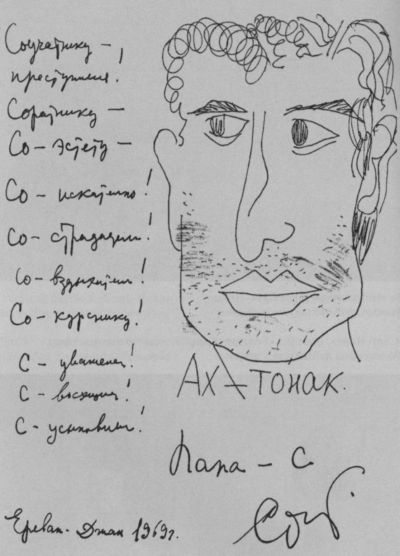 Соучастнику –
преступления!
Соратнику –
Со – эстету –
Со – искателю!
Со – страдателю!
Со – вздыхателю!
Со – курснику!
С – уважением!
С – усыновлением!
АХ – ТОНАК.
Папа – С
Ереван-Джан 1969г.